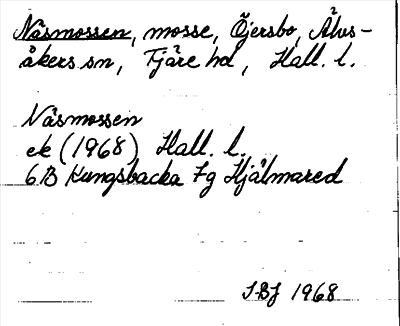 Näsmossen, mosse, Öjersbo, Älvs-
åkers sn, Fjäre hd, Hall. l.
Näsmossen
ek (1968) Hall. l.
6B Kungsbacka 7g Hjälmared
SBJ 1968